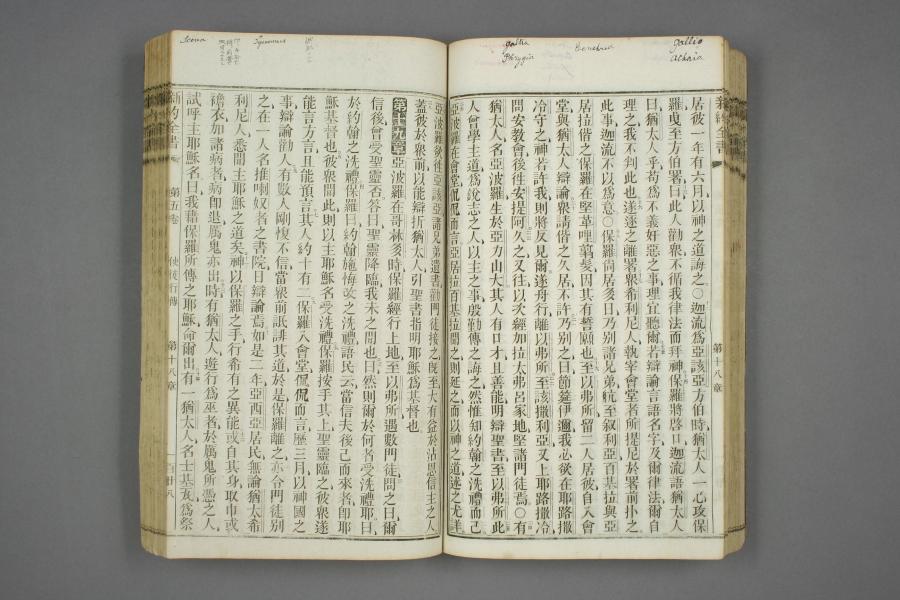 gallio
Achaia
Cenchrea
gallia
Phrygia
Tyrannus
Sceva
新約全書
第十八章
居彼一年有六月以神之道誨之○迦流為亞該亞方伯時猶太人一心攻保
羅曳至方伯署曰此人勸眾不循我律法而拜神保羅將啓口迦流語猶太人
曰猶太人乎苟為不義奸惡之事理宜聽爾若辯論言語名字及爾律法爾自
理之我不判此也遂逐之離署眾希利尼人執宰會堂者所提尼於署前扑之
此事迦流不以為意○保羅尚居多日乃別諸兄弟航至叙利亞百基拉與亞
居拉偕之保羅在堅革哩薙髮因其有誓願也至以弗所留二人居彼自入會
堂與猶太人辯論眾請偕之久居不許乃別之曰節筵伊邇我必欲在耶路撒
冷守之神若許我則將反見爾遂舟行離以弗所至該撒利亞又上耶路撒冷
問安教會後往安提阿久之又往以次經加拉太弗呂家地堅諸門徒焉○有
猶太人名亞波羅生於亞力山大其人有口才且善能明辯聖書至以弗所此
人會學主道為說志之人以主之事殷勤傳之誨之然惟知約翰之洗禮而已
亞波羅在會堂侃侃而言亞居拉百基拉聞之則延之而以神之道述之尤詳
亞波羅欲往亞該亞諸兄弟遺書勸門徒接之既至大有益於沾恩信主之人
蓋彼於眾前以能辯折猶太人引聖書指明耶穌為基督也
第十九章 亞波羅在哥林多時保羅經行上地至以弗所遇數門徒問之曰爾
信後會受聖靈否答曰聖靈降臨我未之聞也曰然則爾於何者受洗禮耶曰
於約翰之洗禮保羅曰約翰施悔改之洗禮語民云當信夫後己而來者即耶
穌基督也彼眾聞此則以主耶穌名受洗禮保羅按手其上聖靈臨之彼眾遂
能言方言且能預言其人約十有二○保羅入會堂侃侃而言歷三月以神國之
事辯論勸人有數人剛愎不信當眾前詆誹其道於是保羅離之亦令門徒別
之在一人名推喇奴者之書院日辯論焉如是二年亞西亞居民無論猶太希
利尼人悉聞主耶穌之道矣神以保羅之手行希有之異能或自其身取巾或
襜衣加諸病者病即退厲鬼亦出時有猶太人遊行為巫者於厲鬼所憑之人
試呼主耶穌名曰我藉保羅所傳之耶穌命爾出有一猶太人名士基瓦為祭
新約全書
第五卷
使徒行傳
第十八章
百卅八